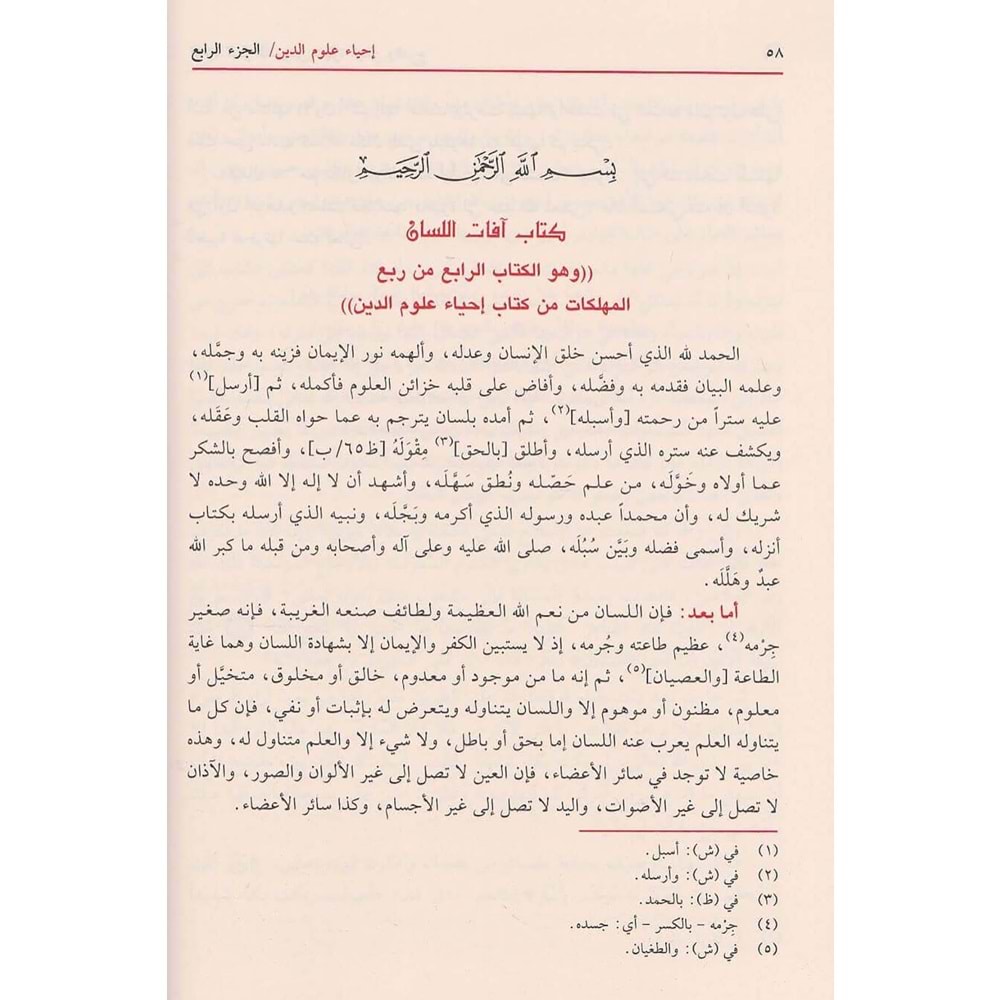 ٥٨
إحياء علوم الدين/ الجزء الرابع
بِسْمِ اللَّهِ الرَّحْمَٰنِ الرَّحِيمِ
كتاب آفات اللسان
((وهو الكتاب الرابع من ربع
المهلكات من كتاب إحياء علوم الدين))
الحمد لله الذي أحسن خلق الإنسان وعدله، وألهمه نور الإيمان فزينه به وجمَّله،
وعلمه البيان فقدمه به وفضَّله، وأفاض على قلبه خزائن العلوم فأكمله، ثم [أرسل](١)
عليه ستراً من رحمته [وأسبله](٢)، ثم أمده بلسان يترجم به عما حواه القلب وعَقَله،
ويكشف عنه ستره الذي أرسله، وأطلق [بالحق](٣) مِقْوَلَهُ [ظ٦٥/ب]، وأفصح بالشكر
عما أولاه وخَوَّلَه، من علم حَصّله ونُطق سَهَّلَه، وأشهد أن لا إله إلا الله وحده لا
شريك له، وأن محمداً عبده ورسوله الذي أكرمه وبَجَّلَه، ونبيه الذي أرسله بكتاب
أنزله، وأسمى فضله وبَيَّن سُبُلَه، صلى الله عليه وعلى آله وأصحابه ومن قبله ما كبر الله
عبدٌ وهَلَّلَه.
أما بعد: فإن اللسان من نعم الله العظيمة ولطائف صنعه الغريبة، فإنه صغير
جِرْمه(٤)، عظيم طاعته وجُرمه، إذ لا يستبين الكفر والإيمان إلا بشهادة اللسان وهما غاية
الطاعة [والعصيان](٥)، ثم إنه ما من موجود أو معدوم، خالق أو مخلوق، متخيَّل أو
معلوم، مظنون أو موهوم إلا واللسان يتناوله ويتعرض له بإثبات أو نفي، فإن كل ما
يتناوله العلم يعرب عنه اللسان إما بحق أو باطل، ولا شيء إلا والعلم متناول له، وهذه
خاصية لا توجد في سائر الأعضاء، فإن العين لا تصل إلى غير الألوان والصور، والآذان
لا تصل إلى غير الأصوات، واليد لا تصل إلى غير الأجسام، وكذا سائر الأعضاء.
(١) في (ش): أسبل.
(٢) في (ش): وأرسله.
(٣) في (ظ): بالحمد.
(٤) جِرْمه - بالكسر - أي: جسده.
(٥) في (ش): والطغيان.